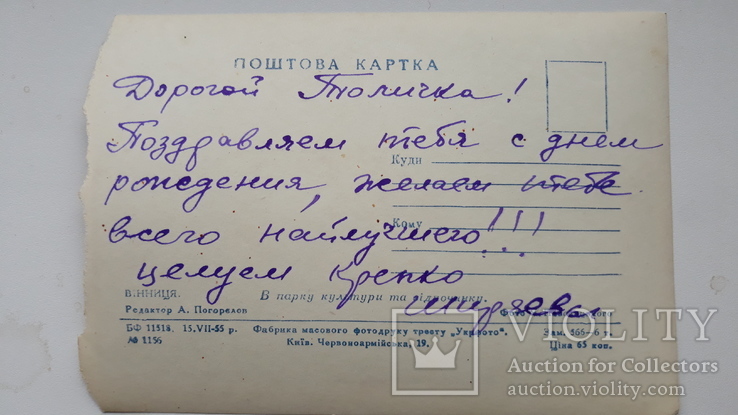 ПОШТОВА КАРТКА
Дорогой Толичка!
Поздравляем тебя с днем
Куди
рождения, желаем тебе
Кому
всего найлучшего!!!
целуем крепко
ВІННИЦЯ. В парку культури та відпочинку.
Редактор А. Погорєлов Фото
БФ 11518. 15.VII-55 р. Фабрика масового фотодруку тресту „Укрфото“. Зам. 566—6 т.
АФ 1156 Київ. Червоноармійська, 19. Ціна 65 коп.
VIOLITY
Auction for Collectors
auction.violity.com